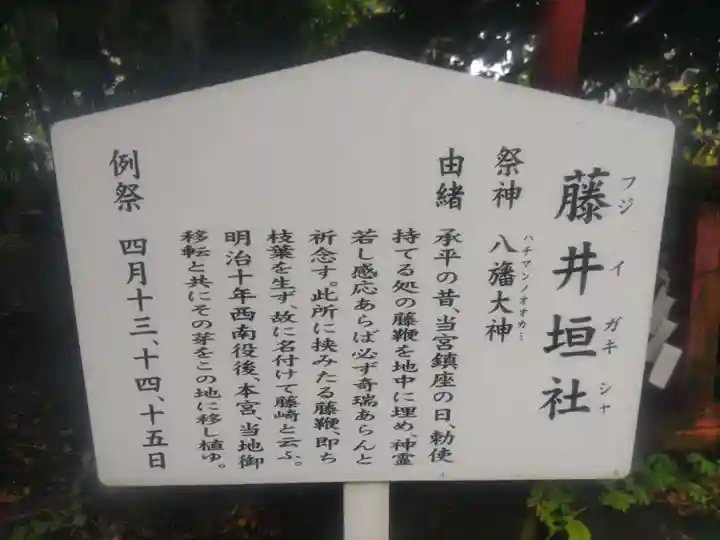 藤井垣社
フジイガキシャ
祭神 八旛大神
ハチマンノオオカミ
由緒 承平の昔、当宮鎮座の日、勅使
持てる処の藤鞭を地中に埋め、神霊
若し感応あらば必ず奇瑞あらんと
祈念す。此所に挟みたる藤鞭、即ち
枝葉を生ず、故に名付けて藤崎と云ふ。
明治十年西南役後、本宮、当地御
移転と共にその芽をこの地に移し植ゆ。
例祭 四月十三、十四、十五日